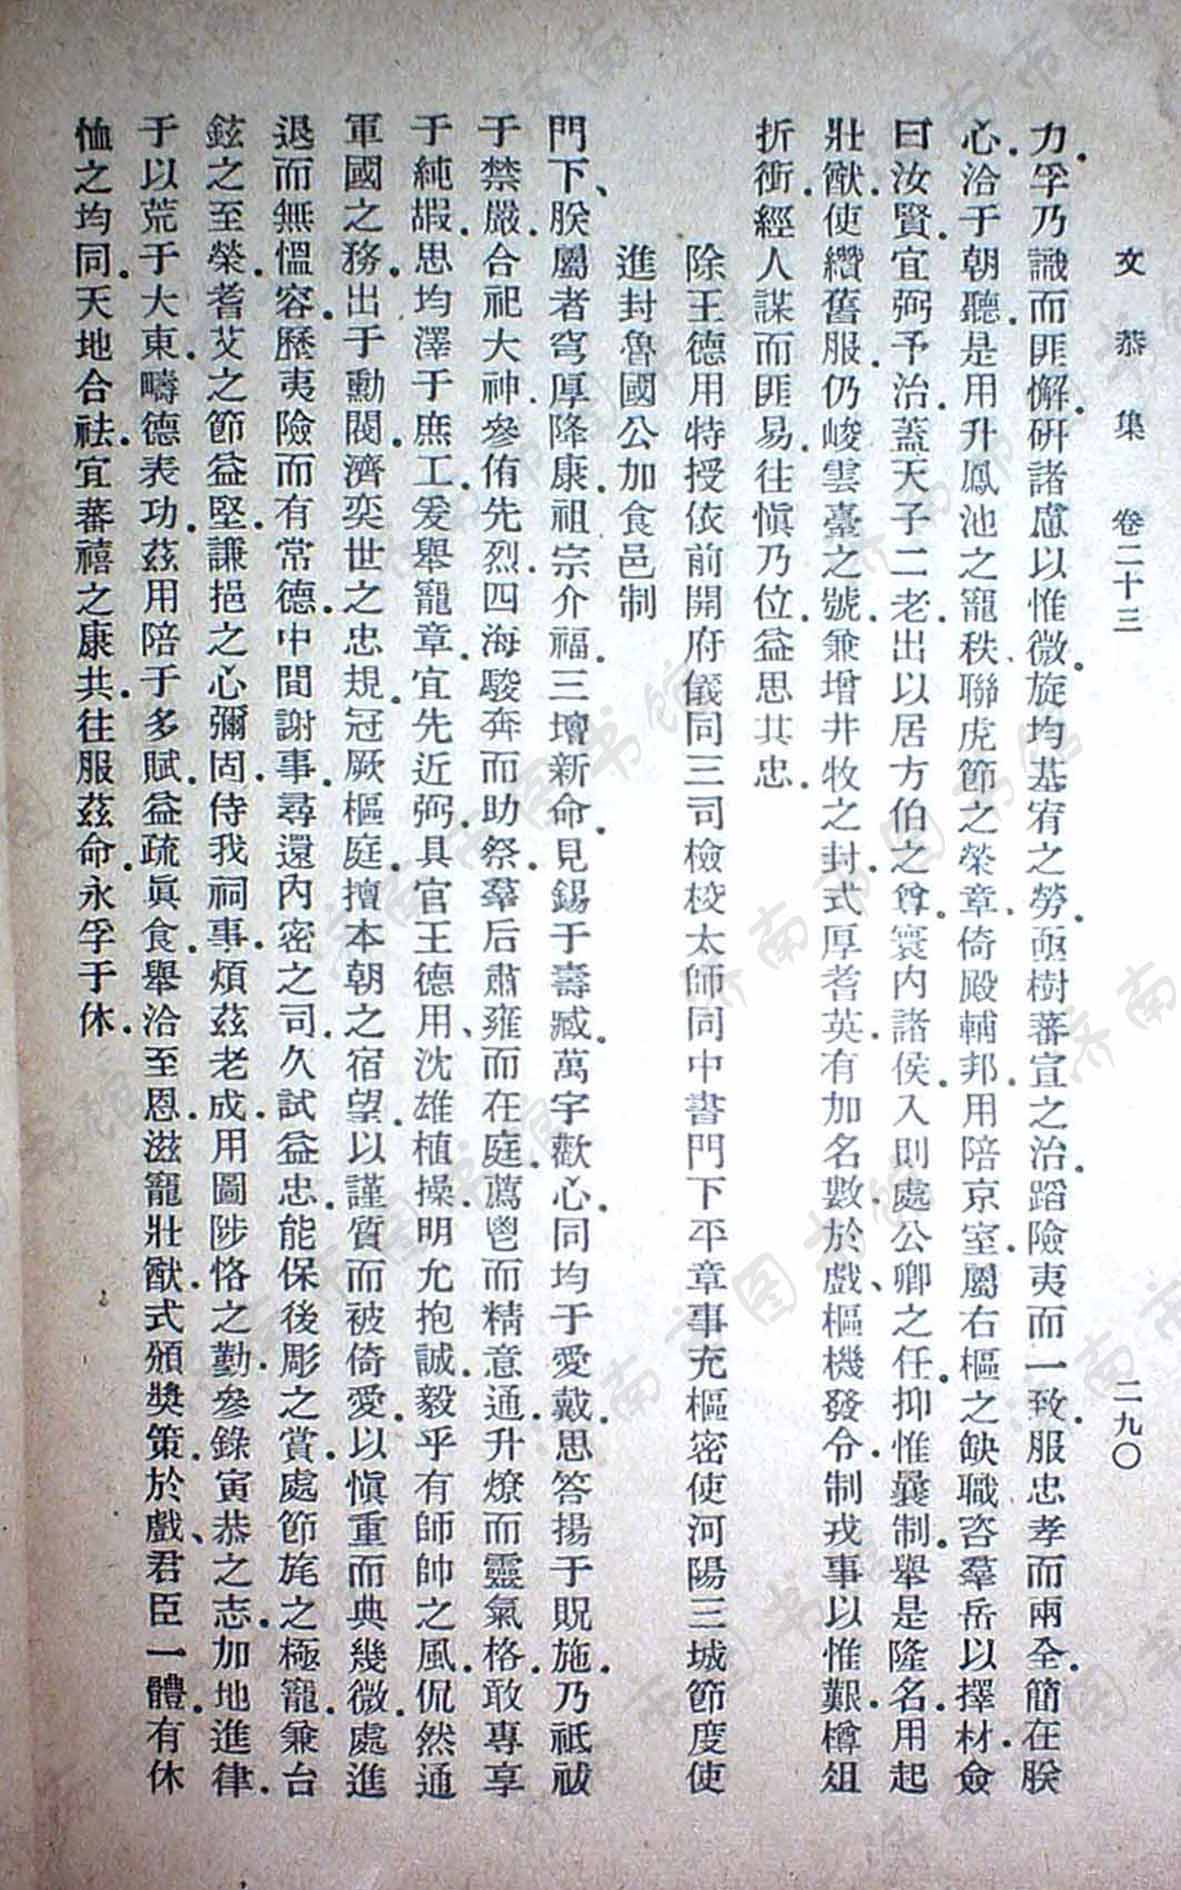 文恭集　卷二十三　二九〇
力.孚乃識而匪懈.硏諸慮以惟微.旋均基宥之勞.亟樹蕃宣之治.蹈險夷而一致.服忠孝而兩全.簡在朕
心.洽于朝聽.是用升鳳池之寵秩.聯虎節之榮章.倚殿輔邦.用陪京室.屬右樞之缺職.咨羣岳以擇材.僉
曰汝賢.宜弼予治.蓋天子二老.出以居方伯之尊.寰內諸侯.入則處公卿之任.抑惟曩制.舉是隆名.用起
壯猷.使纘舊服.仍峻雲臺之號.兼增井牧之封.式厚耆英.有加名數.於戲、樞機發令.制戎事以惟艱.樽俎
折衝.經人謀而匪易.往愼乃位.益思其忠.
除王德用特授依前開府儀同三司檢校太師同中書門下平章事充樞密使河陽三城節度使
進封魯國公加食邑制
門下、朕屬者穹厚降康.祖宗介福.三壇新命.見錫于壽臧.萬宇歡心.同均于愛戴.思答揚于貺施.乃祗祓
于禁嚴.合祀大神.參侑先烈.四海駿奔而助祭.羣后肅雍而在庭.薦鬯而精意通.升燎而靈氣格.敢專享
于純嘏.思均澤于庶工.爰舉寵章.宜先近弼.具官王德用、沈雄植操.明允抱誠.毅乎有師帥之風.侃然通
軍國之務.出于勳閥.濟奕世之忠規.冠厥樞庭.擅本朝之宿望.以謹質而被倚愛.以愼重而典幾微.處進
退而無慍容.歷夷險而有常德.中間謝事.尋還內密之司.久試益忠.能保後彫之賞.處節旄之極寵.兼台
鉉之至榮.耆艾之節益堅.謙挹之心彌固.侍我祠事.煩茲老成.用圖陟恪之勤.參錄寅恭之志.加地進律.
于以荒于大東.疇德表功.茲用陪于多賦.益疏眞食.舉洽至恩.滋寵壯猷.式頒奬策.於戲、君臣一體.有休
恤之均同.天地合祛.宜蕃禧之康共.往服茲命.永孚于休.
济南市图书馆